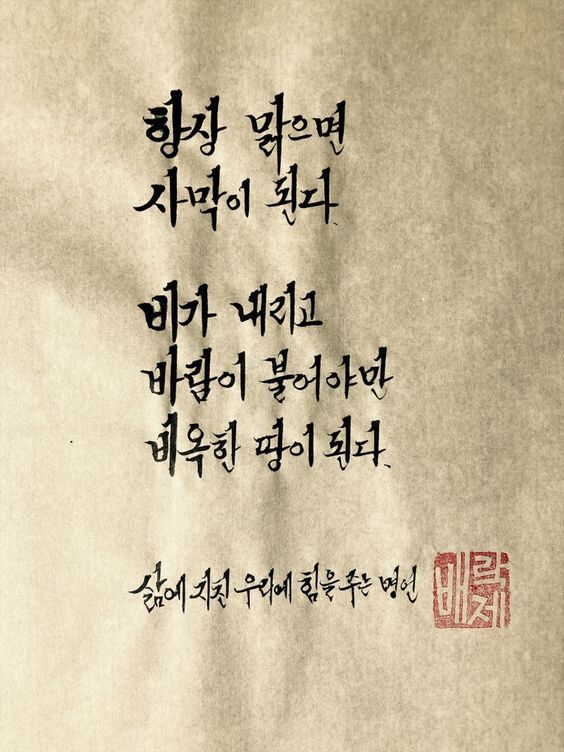 항상 맑으면
사막이 된다.
비가 내리고
바람이 불어야만
비옥한 땅이 된다.
삶에 지친 우리에 힘을 주는 명언
락
배제